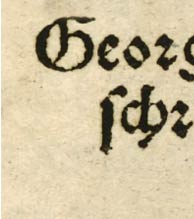 Georg
ſchr